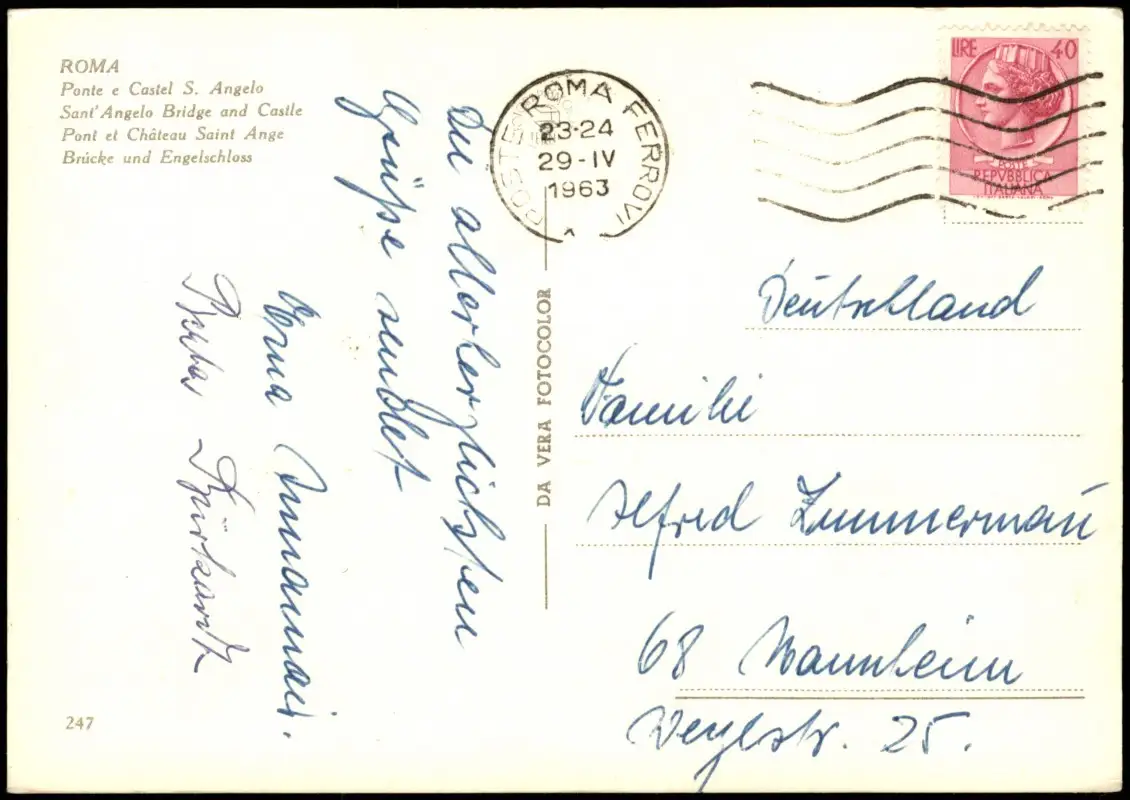 ROMA
Ponte e Castel S. Angelo
Sant'Angelo Bridge and Castle
Pont et Château Saint Ange
Brücke und Engelschloss
Die allerherzlichsten
Grüße sendet
Erna
247
DA VERA FOTOCOLOR
POSTE ROMA FERROVIA
23-24
29-IV
1963
LIRE 40
POSTE
REPVBBLICA
ITALIANA
Deutschland
Familie
Alfred Zimmermann
68 Mannheim
25.